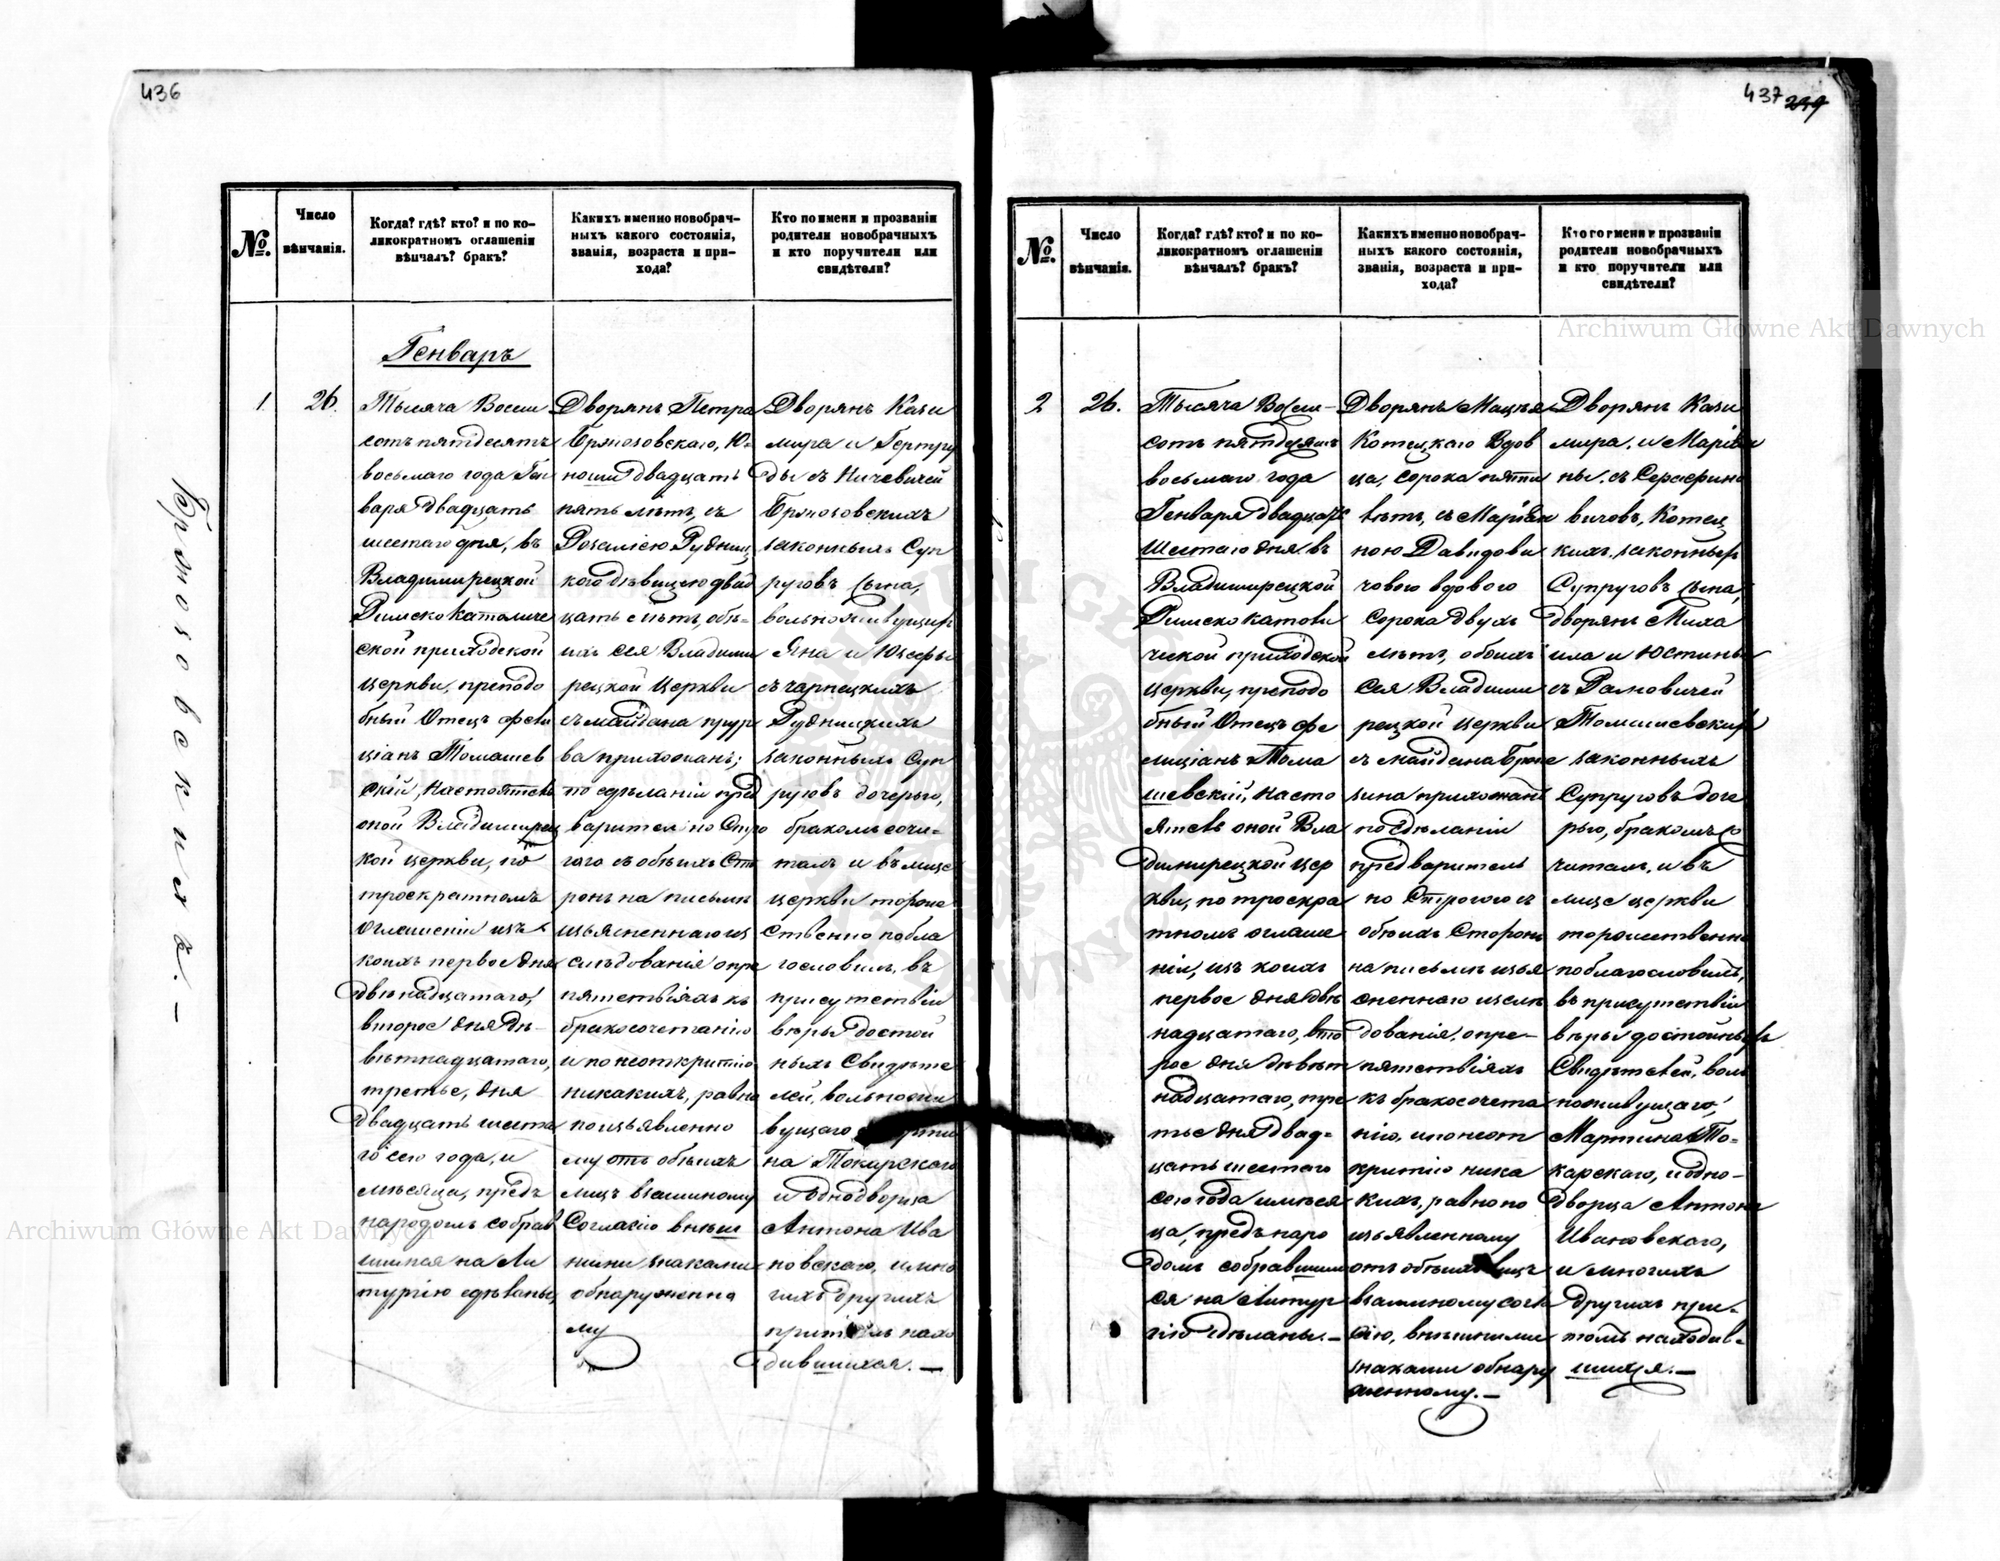 436
№.
Число
вѣнчанія.
Когда? гдѣ? кто? и по ко-
ликократномъ оглашеніи
вѣнчалъ? бракъ?
Какихъ именно новобрач-
ныхъ какого состоянія,
званія, возраста и при-
хода?
Кто по имени и прозванію
родители новобрачныхъ
и кто поручители или
свидѣтели?
Генварь
1
26.
Тысяча Восем
сотъ пятдесятъ
восьмаго года Ген
варя двадцать
шестаго дня, въ
Владимирецкой
Римско Католиче
ской приходской
церкви, преподо
бный Отецъ Фели
ціанъ Томашев
скій, Настоятель
оной Владимирец
кой церкви, по
троекратномъ
оглашеніи изъ
коихъ первое дня
двѣнадцатаго,
второе дня де-
вѣтнадцатаго,
третье, дня
двадцать шеста
го сего года, и
мѣсяца, предъ
народомъ собрав
шимся на Ли
тургію сдѣланы,
Дворянъ Петра
Бржозовскаго, Ю-
ношу двадцать
пять лѣтъ, съ
Розаліею Рудниц
кою дѣвицею двад
цать лѣтъ, обѣ-
ихъ сея Владими
рецкой Церкви
съ майдана
ва прихожанъ;
по сдѣланіи пред
варительно Стро
гаго съ обѣихъ Сто
ронъ на письмѣ
изъясненнаго из
слѣдованія о пре
пятствіяхъ къ
бракосочетанію
и по неоткритію
никакихъ, равно
по изъявленно
му отъ обѣихъ
лицъ взаимному
Согласію внѣш
ними знаками
обнаруженно
му
Дворянъ Кази
мира и Гертру
ды съ Ничевичей
Бржозовскихъ
законныхъ Суп
руговъ сына,
вольноживущихъ
Яна и Юзефы
съ чарнецкихъ
Рудницкихъ
законныхъ Суп
руговъ дочерью,
бракомъ сочи-
талъ и въ лице
церкви торже
ственно побла
гословилъ, въ
присутствіи
вѣры достой
ныхъ Свидѣте
лей, вольножи
вущаго Марти
на Токарскаго
и однодворца
Антона Ива
новскаго, и мно
гихъ другихъ
притомъ нахо
дившихся. —
Бржозовскихъ. —
437 219
№.
Число
вѣнчанія.
Когда? гдѣ? кто? и по ко-
ликократномъ оглашеніи
вѣнчалъ? бракъ?
Какихъ именно новобрач-
ныхъ какого состоянія,
званія, возраста и при-
хода?
Кто по имени и прозванію
родители новобрачныхъ
и кто поручители или
свидѣтели?
2
26.
Тысяча Восем-
сотъ пятдесятъ
восьмаго года
Генваря двадцать
Шестаго дня въ
Владимирецкой
Римско католи
ческой приходской
церкви, преподо
бный Отецъ Фе
лиціанъ Тома
шевскій, Насто
ятель оной Вла
димирецкой Цер
кви, по троекра
тномъ оглаше
ніи, изъ коихъ
первое дня двѣ
надцатаго, вто
рое дня девѣт
надцатаго, тре
тье дня двад-
цать шестаго
сего года и мѣся
ца, предъ наро
домъ собравшим
ся на Литур
гію сдѣланы. —
Дворянъ Мацѣя
Котецкаго Вдов
ца, сорока пяти
лѣтъ, съ Маріан
ною Давидови
човою вдовою
сорока двухъ
лѣтъ, обоихъ
сея Владими
рецкой церкви
съ майдана Брже
зина прихожанъ
по сдѣланіи
предваритель
но Строгаго съ
обѣихъ Сторонъ
на письмѣ изъя
сненнаго изслѣ
дованія, о пре-
пятствіяхъ
къ бракосочета
нію, и по неот
критію ника
кихъ, равно по
изъявленному
отъ обѣихъ лицъ
взаимному согла
сію, внѣшними
знаками обнару
женному. —
Дворянъ Кази
мира, и Маріан
ны, съ Серафино
вичовъ, Котец
кихъ, законныхъ
Супруговъ сына,
дворянъ Миха
ила и Юстины
съ Рамовичей
Томашевскихъ
законныхъ
Супруговъ доче
рью, бракомъ со
читалъ, и въ
лице церкви
торжественно
поблагословилъ,
въ присутствіи
вѣры достойныхъ
Свидѣтелей, воль
ноживущаго,
Мартина То-
карскаго, и одно-
дворца Антона
Ивановскаго,
и многихъ
другихъ при-
томъ находив-
шихся. —
Archiwum Główne Akt Dawnych
Archiwum Główne Akt Dawnych